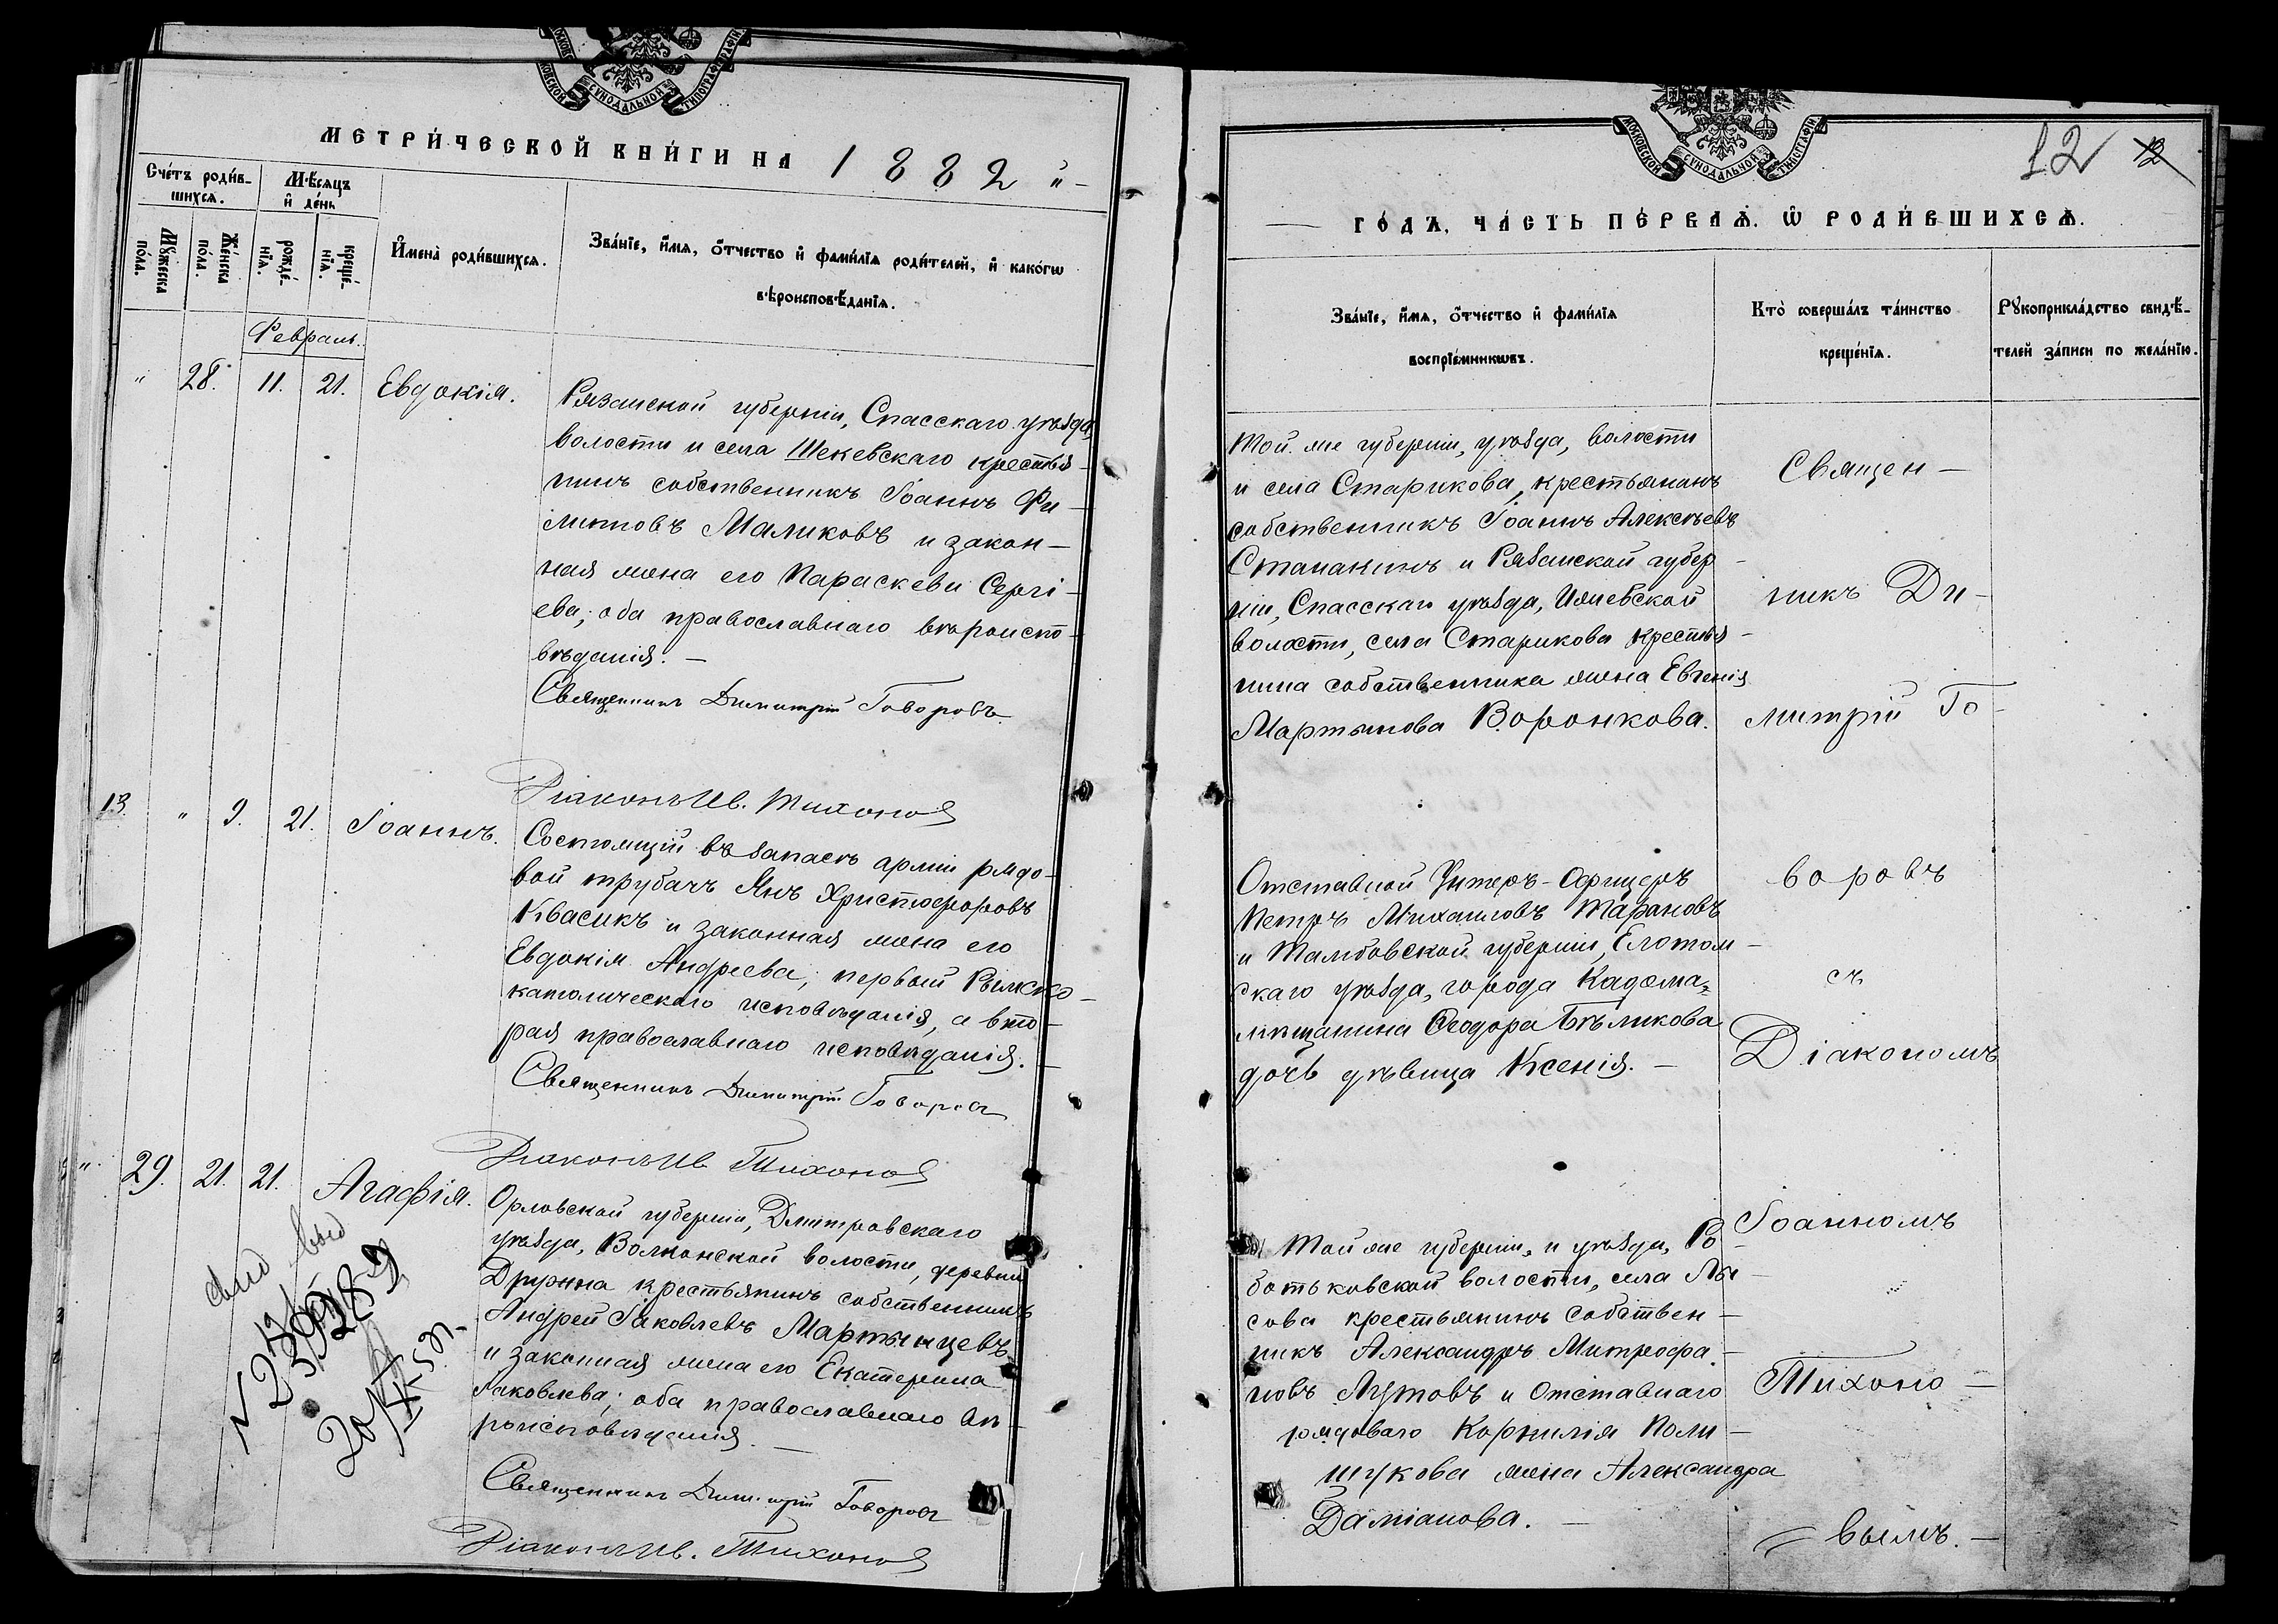 МОСКОВСКОЙ СѴНОДАЛЬНОЙ ТИПОГРАФІИ
МЕТРИ́ЧЕСКОЙ КНИ́ГИ НА 1882
Сче́тъ роди́в-
шихсѧ.
Мѣ́сѧцъ
и҆ де́нь
Мꙋ́жеска
по́ла.
Же́нска
по́ла.
рожде́-
нїѧ.
креще́-
нїѧ.
И҆мена̀ роди́вшихсѧ.
Зва́нїе, и҆́мѧ, ѻ҆́тчество и҆ фами́лїѧ роди́телей, и҆ како́гѡ
вѣроисповѣ́данїѧ.
Февраль.
" 28. 11. 21. Евдокія.
Рязанской губерніи, Спасскаго уѣзда,
волости и села Шекевскаго крестья-
нинъ собственникъ Іоаннъ Фи-
липповъ Маликовъ и закон-
ная жена его Параскева Сергі-
ева; оба православнаго вѣроиспо-
вѣданія. —
Священникъ Димитрій Говоровъ
Діаконъ Ив. Тихонов
13. " 9. 21. Іоаннъ.
Состоящій въ запасѣ арміи рядо-
вой трубачъ Янъ Христофоровъ
Квасикъ и законная жена его
Евдокія Андреева; первый Римско-
католическаго исповѣданія, а вто-
рая православнаго исповѣданія. —
Священникъ Димитрій Говоровъ
Діаконъ Ив. Тихонов
" 29. 21. 21. Агафія.
Орловской губерніи, Дмитровскаго
уѣзда, Волконской волости, деревни
Дружна крестьянинъ собственникъ
Андрей Іаковлевъ Мартынцевъ
и законная жена его Екатерина
Іаковлева; оба православнаго вѣ-
роисповѣданія. —
Священникъ Димитрій Говоровъ
Діаконъ Ив. Тихонов
МОСКОВСКОЙ СѴНОДАЛЬНОЙ ТИПОГРАФІИ
12 12
ГО́ДЪ, ЧА́СТЬ ПЕ́РВАѦ, Ѡ҆ РОДИ́ВШИХСѦ.
Зва́нїе, и҆́мѧ, ѻ҆́тчество и҆ фами́лїѧ
воспрїе́мникѡвъ.
Кто̀ соверша́лъ та́инство
креще́нїѧ.
Рꙋкоприкла́дство свидѣ́-
телей за́писи по жела́нїю.
Той же губерніи, уѣзда, волости
и села Старикова, крестьянинъ
собственникъ Іоаннъ Алексѣевъ
Стаканинъ и Рязанской губер-
ніи, Спасскаго уѣзда, Ижевской
волости, села Старикова крестья-
нина собственника жена Евгенія
Мартынова Воронкова.
Отставной Унтеръ-Офицеръ
Петръ Михаиловъ Тарановъ
и Тамбовской губерніи, Елатом-
скаго уѣзда, города Кадома,
мѣщанина Ѳеодора Бѣликова
дочь дѣвица Ксенія. —
Той же губерніи, и уѣзда, Ро-
ботьковской волости, села Лы-
сова крестьянинъ собствен-
никъ Александръ Митрофа-
новъ Агутовъ и Отставнаго
рядоваго Корнилія Поли-
щукова жена Александра
Даміанова. —
Священ-
никъ Ди-
митрій Го-
воровъ
съ
Діакономъ
Іоанномъ
Тихоно-
вымъ. —